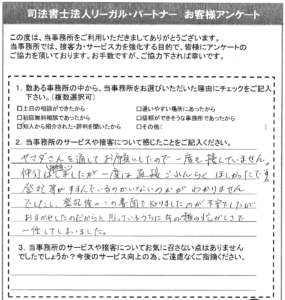 司法書士法人リーガル・パートナー お客様アンケート
この度は、当事務所をご利用いただきましてありがとうございます。
当事務所では、接客力・サービス力を強化する目的で、皆様にアンケートの
ご協力を頂いております。お手数ですが、ご協力下されば幸いです。
1. 数ある事務所の中から、当事務所をお選びいただいた理由にチェックをご記入
下さい。(複数選択可)
□土日の相談ができたから □通いやすい場所にあったから
□初回無料相談であったから □信頼ができそうな事務所であったから
□知人から紹介された・評判を聞いたから □その他( )
2. 当事務所のサービスや接客について感じたことをご記入ください。
ヤマダさんを通してお願いしたので一度も接していません。
ましたが一度は直接ごれんらくほしかったです。
登記等がすんでいるのかいないのかがわかりません
でしたし、登記後のこの書面で知りましたのが
のだからと思っているうちに 忙しさで
してしまいました。
3. 当事務所のサービスや接客についてお気に召さない点はありません
でしたでしょうか?今後のサービス向上の為、ご遠慮なくご指摘ください。